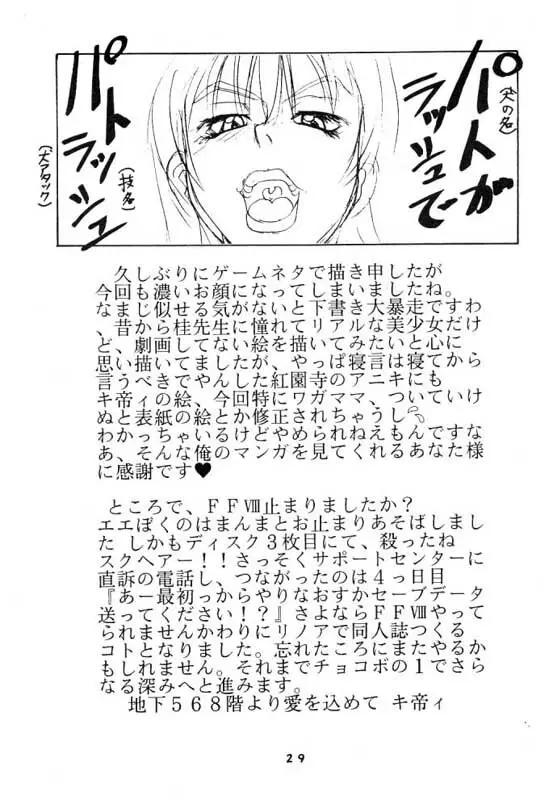 パトが
ラッシュで
(犬の名)
パトラッシュ
(技名)
(犬アタック)
久しぶりにゲームネタで描き申したが
今回も濃いお顔になってしまいましたね。
なまじ似せる気がないと下書き大暴走ですわ
、昔から桂先生に憧れてリアルな美少女だけ
ど、劇画してない絵を描いてみたいと心に
思い描いてましたが、やっぱ寝言は寝てから
言うべきでやんした紅園寺のアニキにも
キ帝ィの絵、今回特にワガママ、ついていけ
ぬと表紙の絵とか修正されちゃうし
わかっちゃいるけどやめられねえもんですな
あ、そんな俺のマンガを見てくれるあなた様
に感謝です♥
ところで、ＦＦⅧ止まりましたか？
エエぼくのはまんまとお止まりあそばしまし
た しかもディスク３枚目にて、殺ったね
スクヘアー！！さっそくサポートセンターに
直訴の電話し、つながったのは４っ日目
『あー最初っからやりなおすかセーブデータ
送ってください！？』さよならＦＦⅧやって
られませんかわりにリノアで同人誌つくる
コトとなりました。忘れたころにまたやるか
もしれません。それまでチョコボの１でさら
なる深みへと進みます。
地下５６８階より愛を込めて キ帝ィ
29